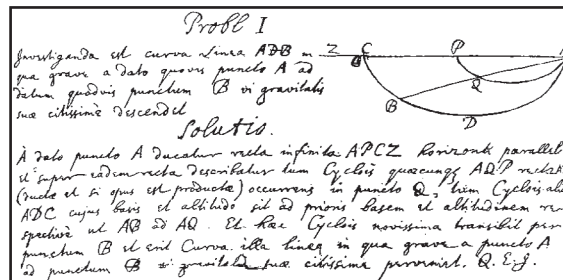 Probl I
Investiganda est curva Linea ADB in Z C P
qua grave a dato quovis puncto A ad
datum quodvis punctum B vi gravitatis B Q
suæ citissimè descendet D
Solutio.
A dato puncto A ducatur recta infinita APCZ horizonti parallel
et super eadem recta describatur tum Cyclois quæcunq AQP rectæ
(ductæ et si opus est productæ) occurrens in puncto Q, tum Cyclois al
ADC cujus basis et altitudo sit ad prioris basem et altitudinem re
spectivè ut AB ad AQ. Et hæc Cyclois novissima transibit per
punctum B et erit Curva illa linea in qua grave a puncto A
ad punctum B vi gravitatis suæ citissime perveniet. Q.E.I.